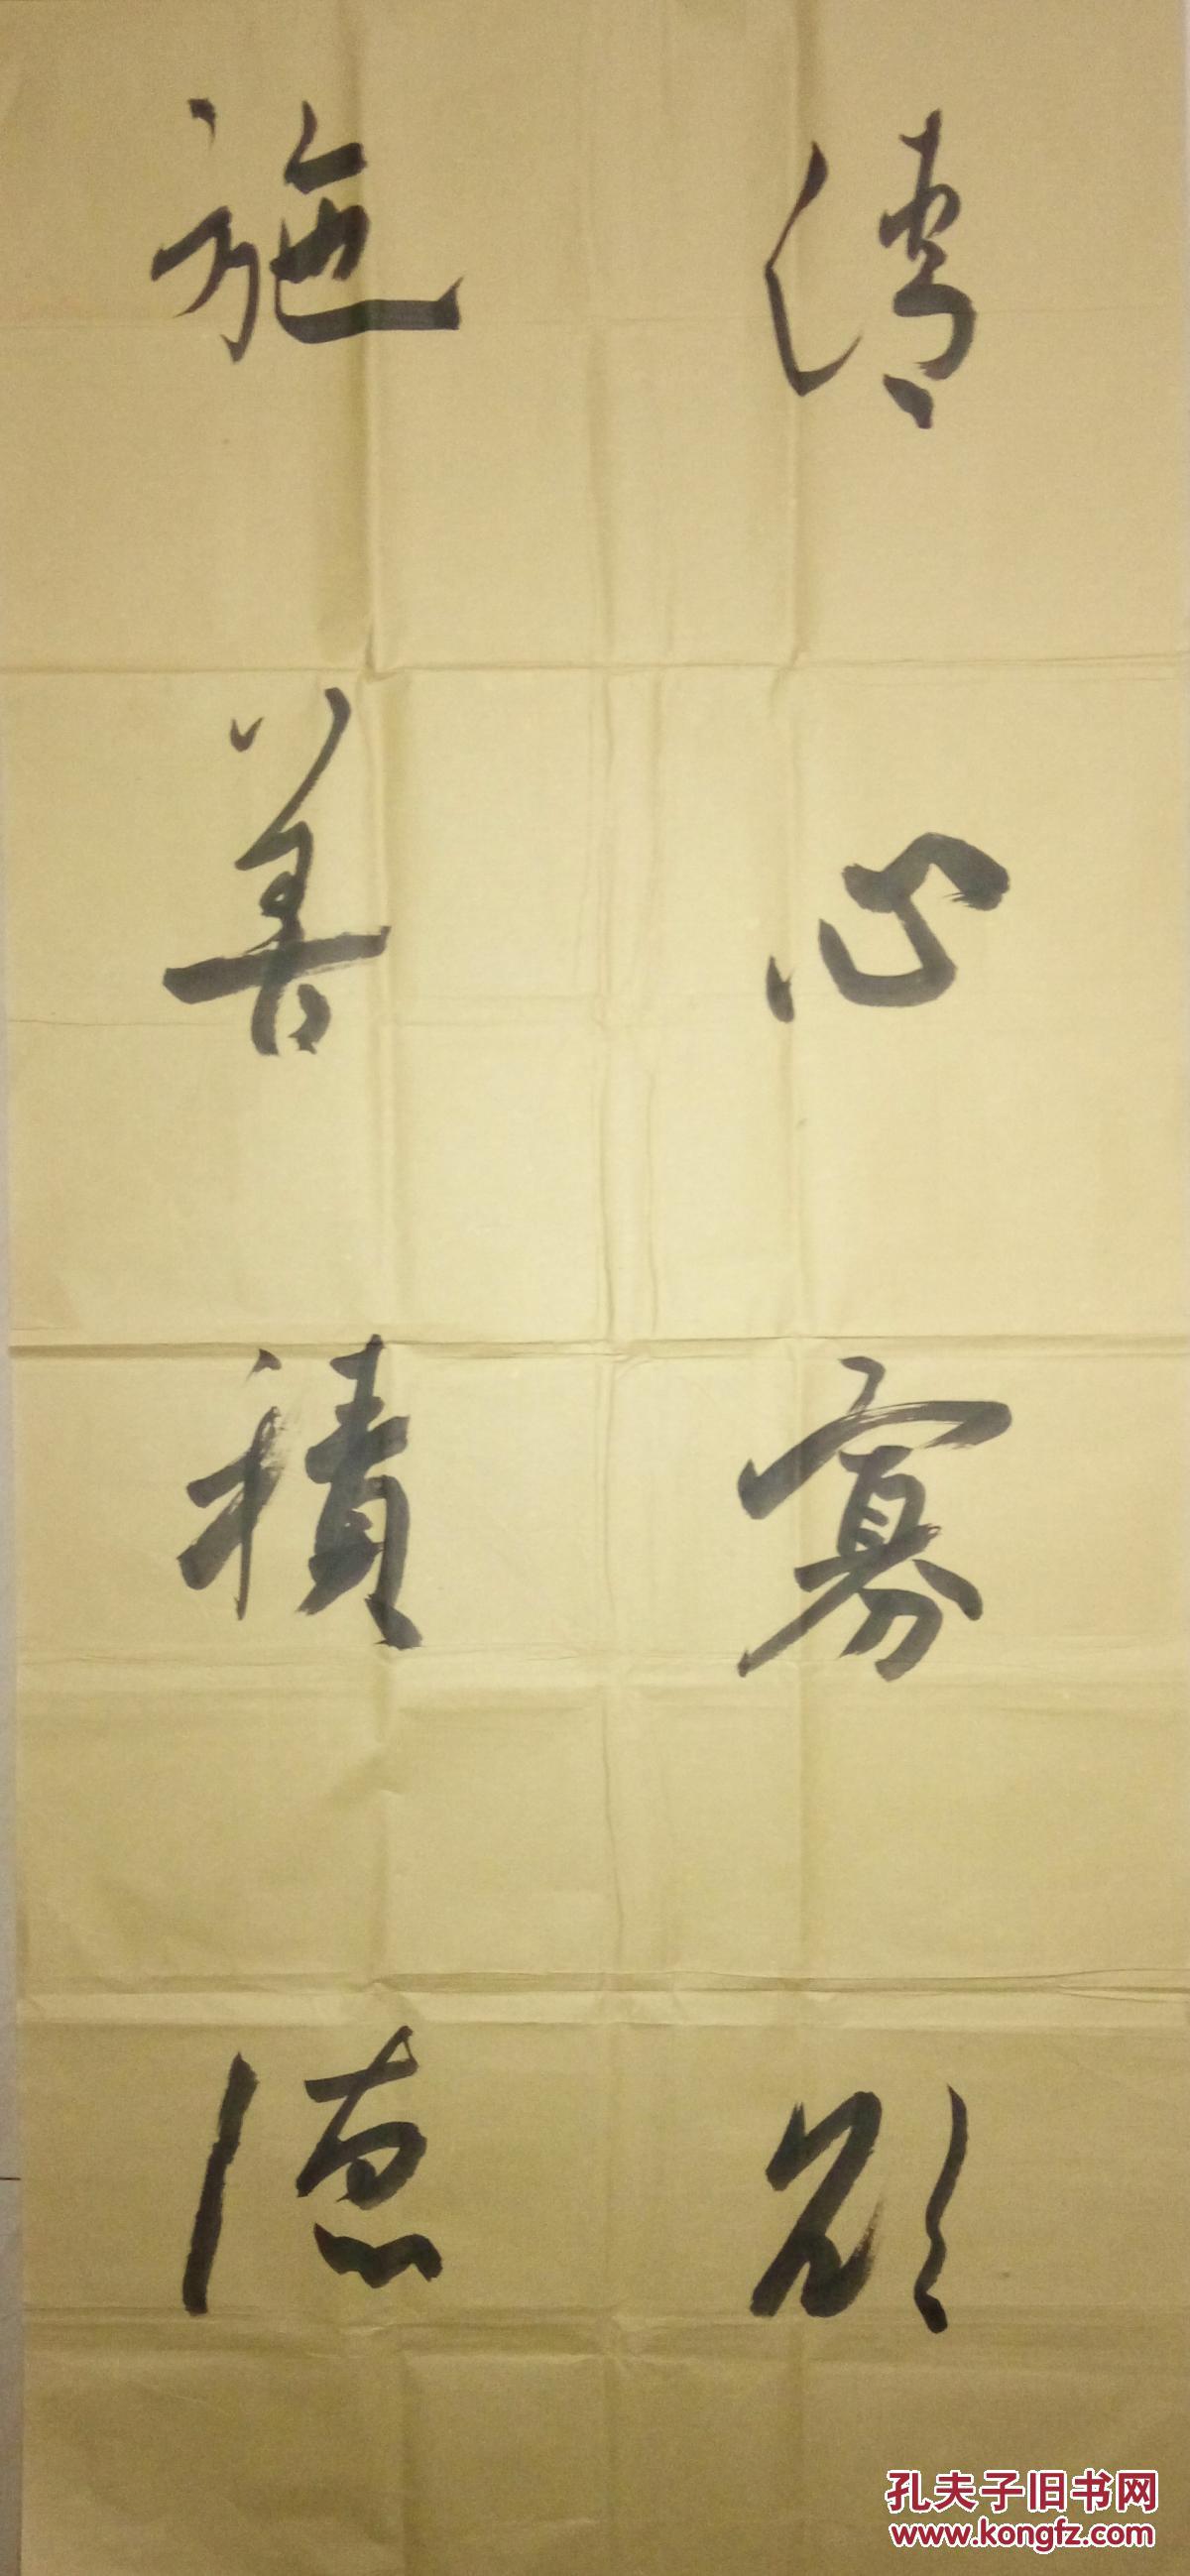 清心寡欲
施善積德
孔夫子旧书网
www.kongfz.com